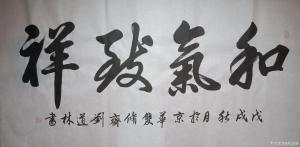 和氣致祥
戊戌秋月於京華雙脩齋劉道林書